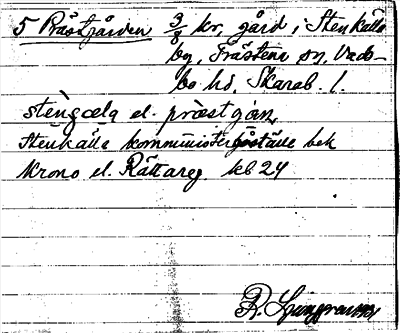 5 Prästgården 3/8 kr, gård i Stenkälla
by, Fräsens sn, Vads-
bo hd, Skarab. l.
stèngcela el. præstgån,
Stenkälla kommunisterboställe bek
Krono el. Rättareg. kb 24
R. Ljunggren